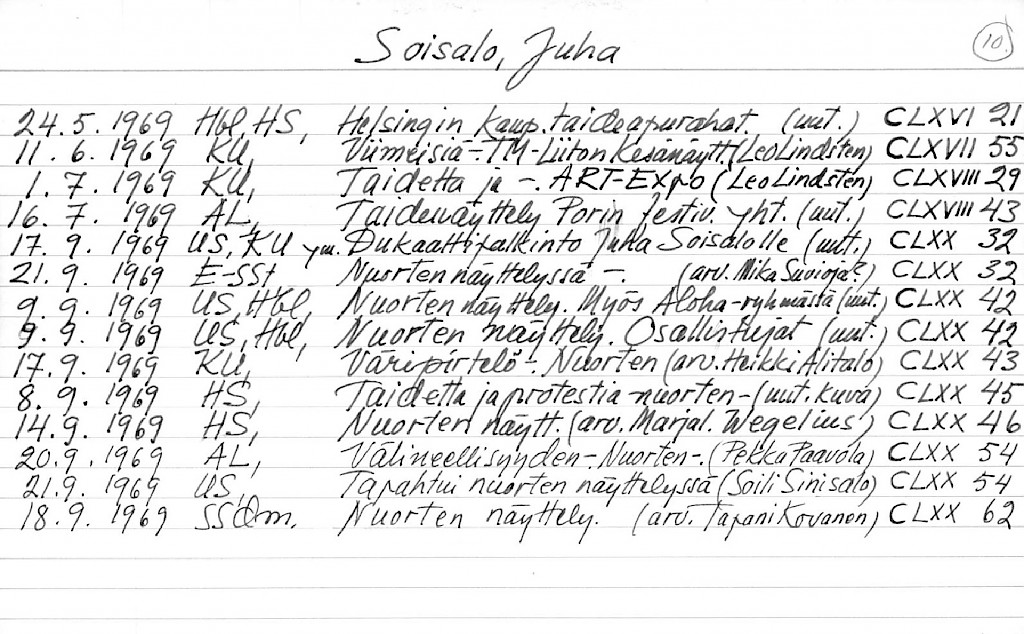 Soisalo, Juha
10.
24.5.1969 Hbl, HS, Helsingin kaup. taideapurahat. (uut.) CLXVI 21
11.6.1969 KU, Viimeisiä -. TM-Liiton Kesänäytt. (Leo Lindsten) CLXVII 55
1.7.1969 KU, Taidetta ja -. ART-Expo (Leo Lindsten) CLXVIII 29
16.7.1969 AL, Taidenäyttely Porin festiv. yht. (uut.) CLXVIII 43
17.9.1969 US, KU ym. Dukaattipalkinto Juha Soisalolle (uut.) CLXX 32
21.9.1969 E-SSt Nuorten näyttelyssä -. (arv. Mika Suvioja?) CLXX 32
9.9.1969 US, Hbl, Nuorten näyttely. Myös Aloha-ryhmästä (uut.) CLXX 42
9.9.1969 US, Hbl, Nuorten näyttely. Osallistujat (uut.) CLXX 42
17.9.1969 KU, Väripirtelö -. Nuorten (arv. Heikki Alitalo) CLXX 43
8.9.1969 HS, Taidetta ja protestia -nuorten- (uut. kuva) CLXX 45
14.9.1969 HS, Nuorten näytt. (arv. Marjal. Wegelius) CLXX 46
20.9.1969 AL, Välineellisyyden -. Nuorten -. (Pekka Paavola) CLXX 54
21.9.1969 US, Tapahtui nuorten näyttelyssä (Soili Sinisalo) CLXX 54
18.9.1969 SSdm. Nuorten näyttely. (arv. Tapani Kovanen) CLXX 62